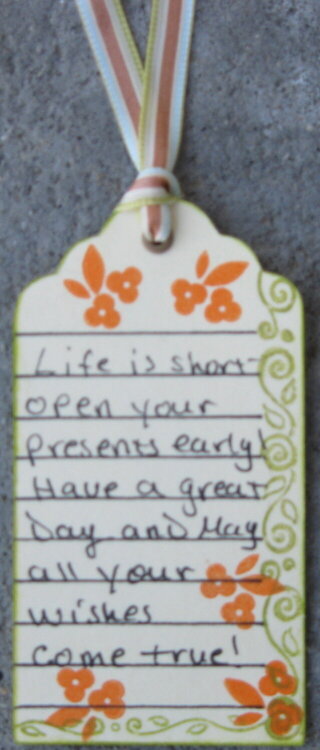 Life is short-
open your
presents early!
Have a great
Day and May
all your
wishes
come true!